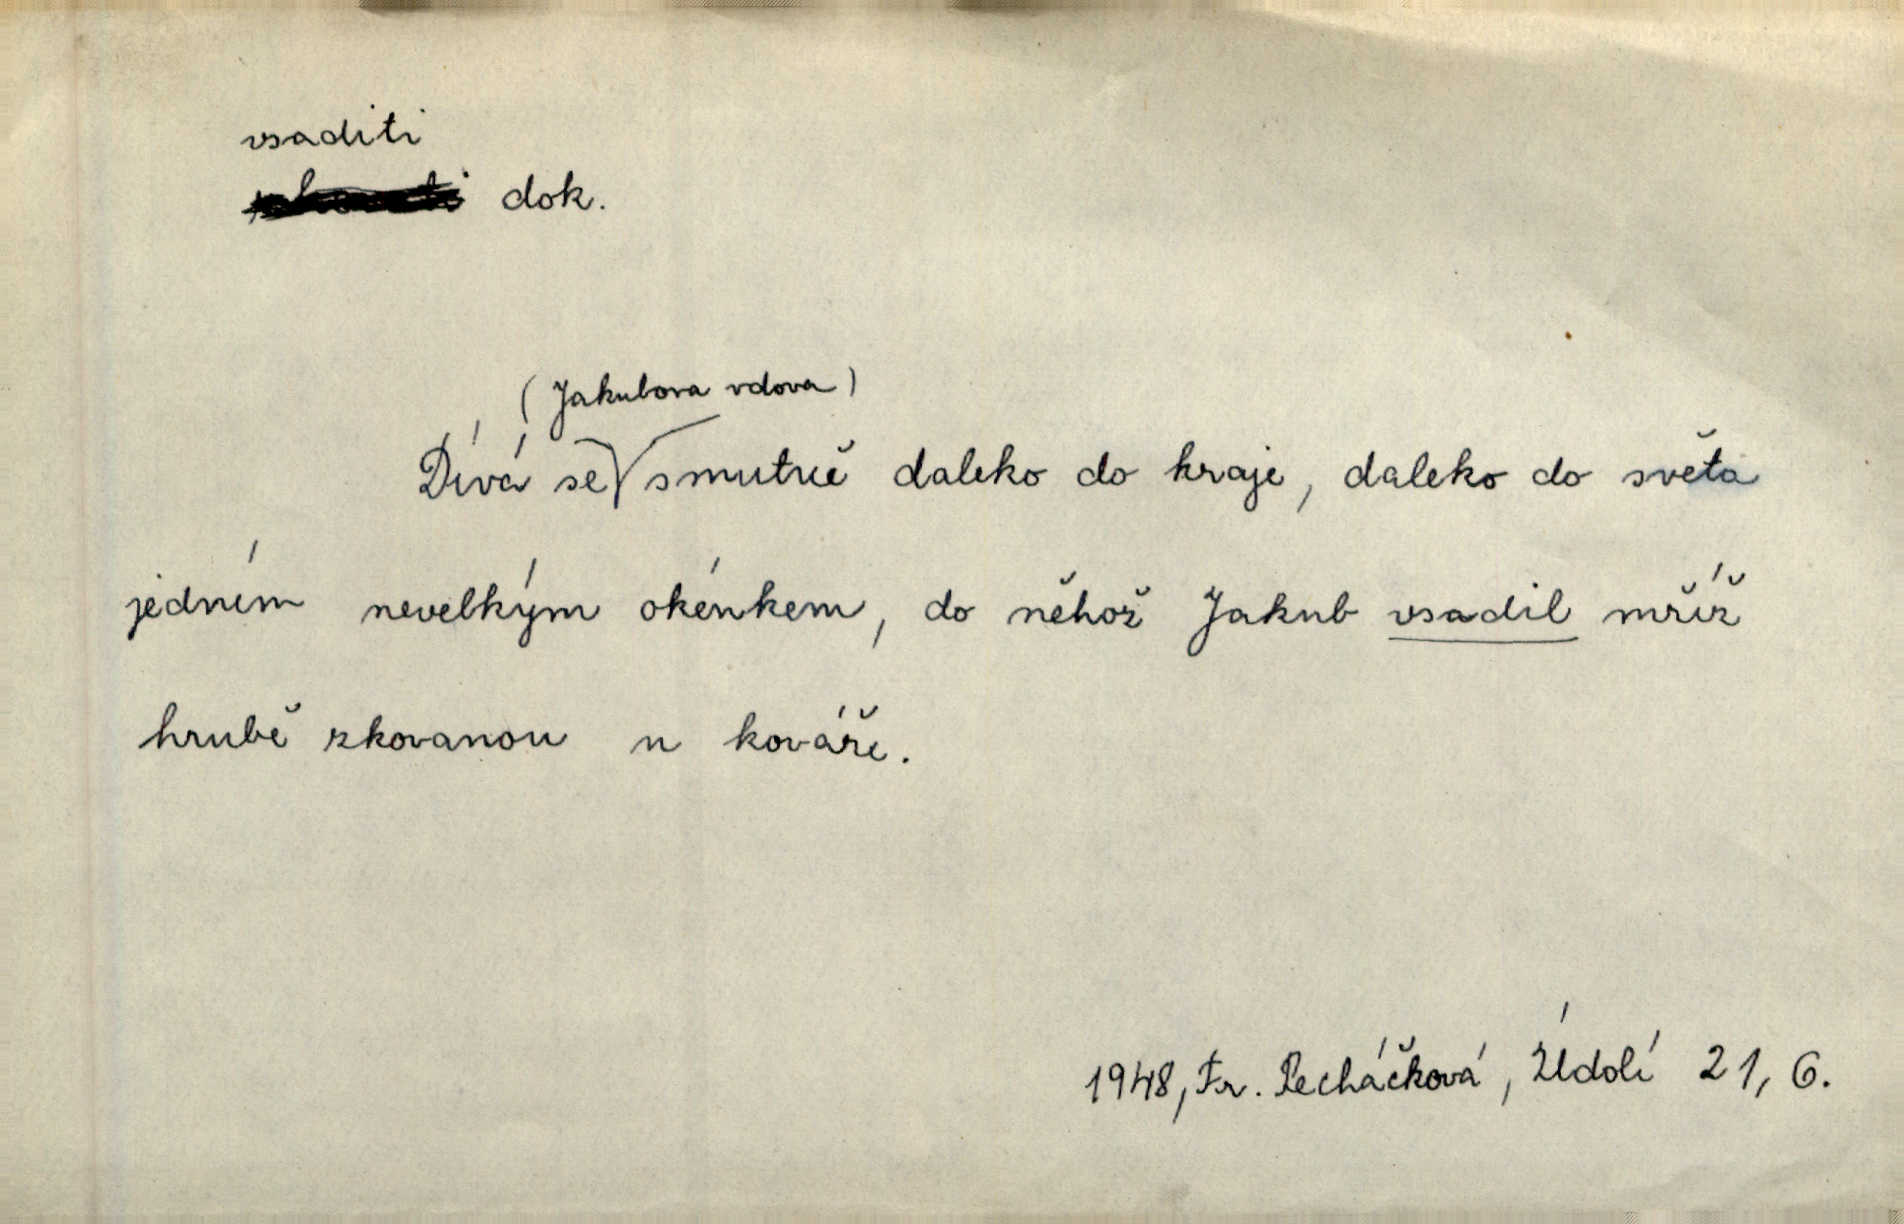 vsaditi
dok.
(Jakubova vdova)
Dívá se smutně daleko do kraje, daleko do světa
jedním nevelkým okénkem, do něhož Jakub vsadil mříž
hrubě zkovanou u kováře.
1948, Fr. Pecháčková, Údolí 21, 6.